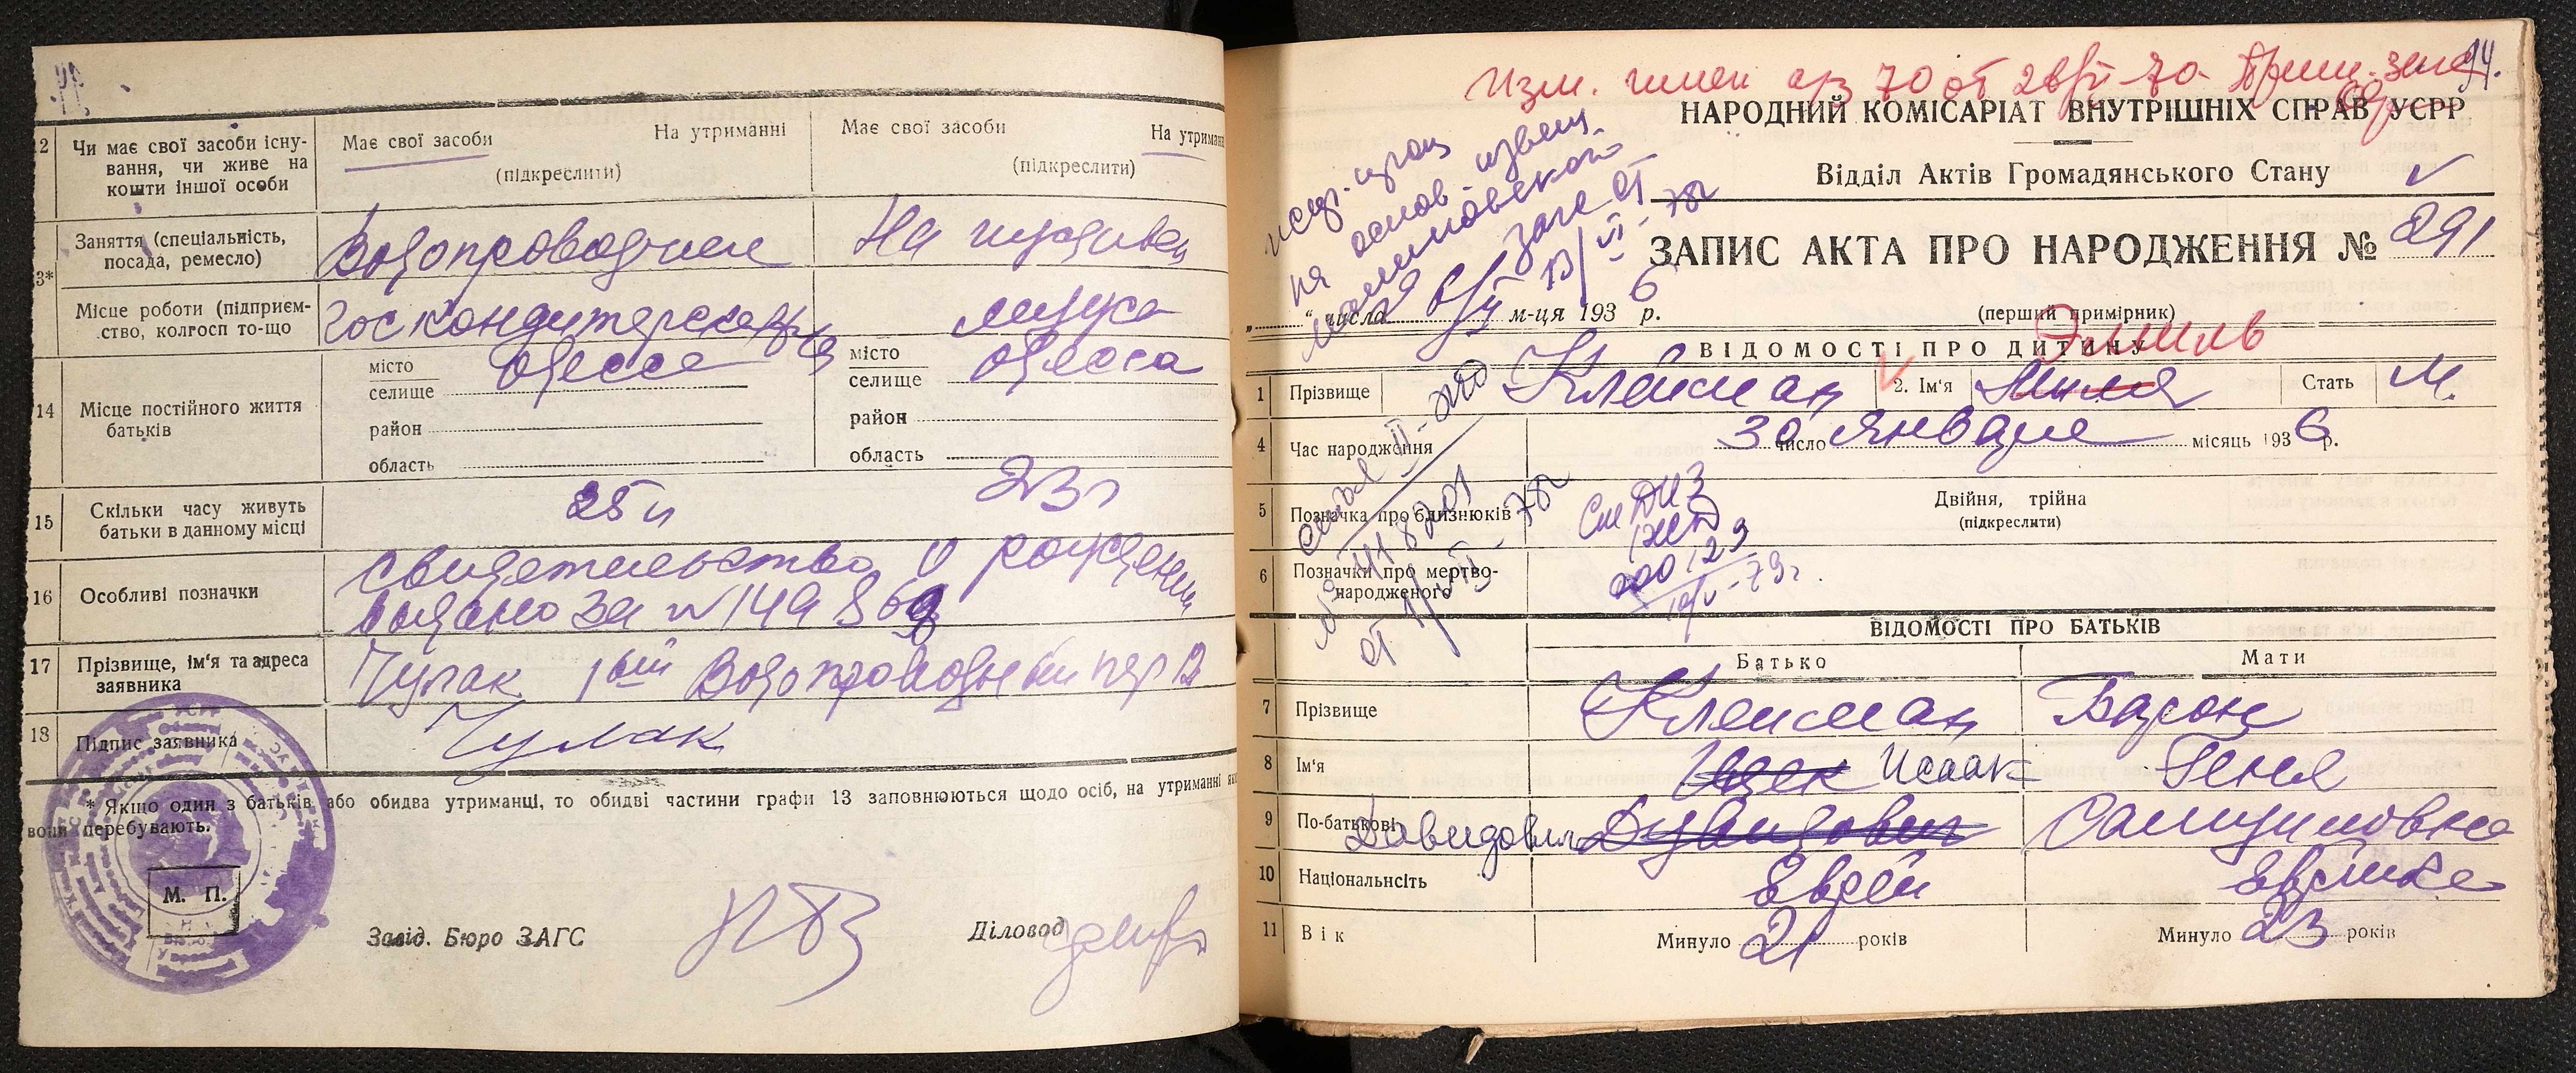 12 Чи має свої засоби існу-
вання, чи живе на
кошти іншої особи
Має свої засоби На утриманні
(підкреслити)
Має свої засоби На утриман
(підкреслити)
3* Заняття (спеціальність,
посада, ремесло)
Водопроводчик
На иждивен
Місце роботи (підприєм-
ство, колгосп то-що
Госкондитерская
мужа
14 Місце постійного життя
батьків
місто Одесса
селище
район
область
місто Одесса
селище
район
область
15 Скільки часу живуть
батьки в данному місці
23 г
16 Особливі позначки
свидетельство о рождении
выдано за № 149869
17 Прізвище, ім'я та адреса
заявника
Чулак 1ый Водопроводный пер 12
18 Підпис заявника
Чулак
* Якщо один з батьків або обидва утриманці, то обидві частини графи 13 заповнюються щодо осіб, на утриманні як
вони перебувають.
М. П.
Завід. Бюро ЗАГС Діловод
94.
Изм. имен 70 от
НАРОДНИЙ КОМІСАРІАТ ВНУТРІШНІХ СПРАВ УСРР
Відділ Актів Громадянського Стану
ЗАПИС АКТА ПРО НАРОДЖЕННЯ № 291
на основ. извещ.
загс от
13/VI-78г
„ “ числа м-ця 1936 р.
(перший примірник)
ВІДОМОСТІ ПРО ДИТИНУ
Эмиль
1 Прізвище Клейман 2. Ім'я Миля Стать М.
4 Час народження 30 число Января місяць 1936 р.
5 Позначка про близнюків
Двійня, трійна
(підкреслити)
6 Позначки про мертво-
народженого
ВІДОМОСТІ ПРО БАТЬКІВ
Батько Мати
7 Прізвище Клейман Барон
8 Ім'я Ицек Исаак Геня
9 По-батькові Давидович Дувидович Самуиловна
10 Національнсіть Еврей Еврейка
11 Вік Минуло 21 років Минуло 23 років